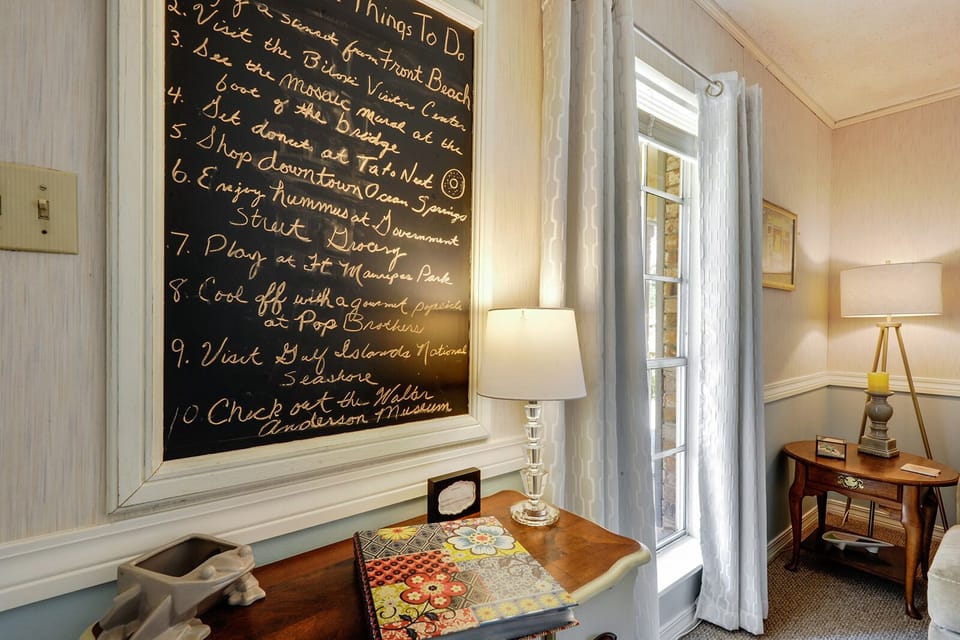 Things To Do
a sunset from Front Beach
2. Visit the Biloxi Visitor Center
3. See the mosaic mural at the
foot of the bridge
4. Get donuts at TatoNut
5. Shop downtown Ocean Springs
6. Enjoy hummus at Government
Street Grocery
7. Play at Ft Maurepas Park
8. Cool off with a gourmet popsicle
at Pop Brothers
9. Visit Gulf Islands National
Seashore
10. Check out the Walter
Anderson Museum